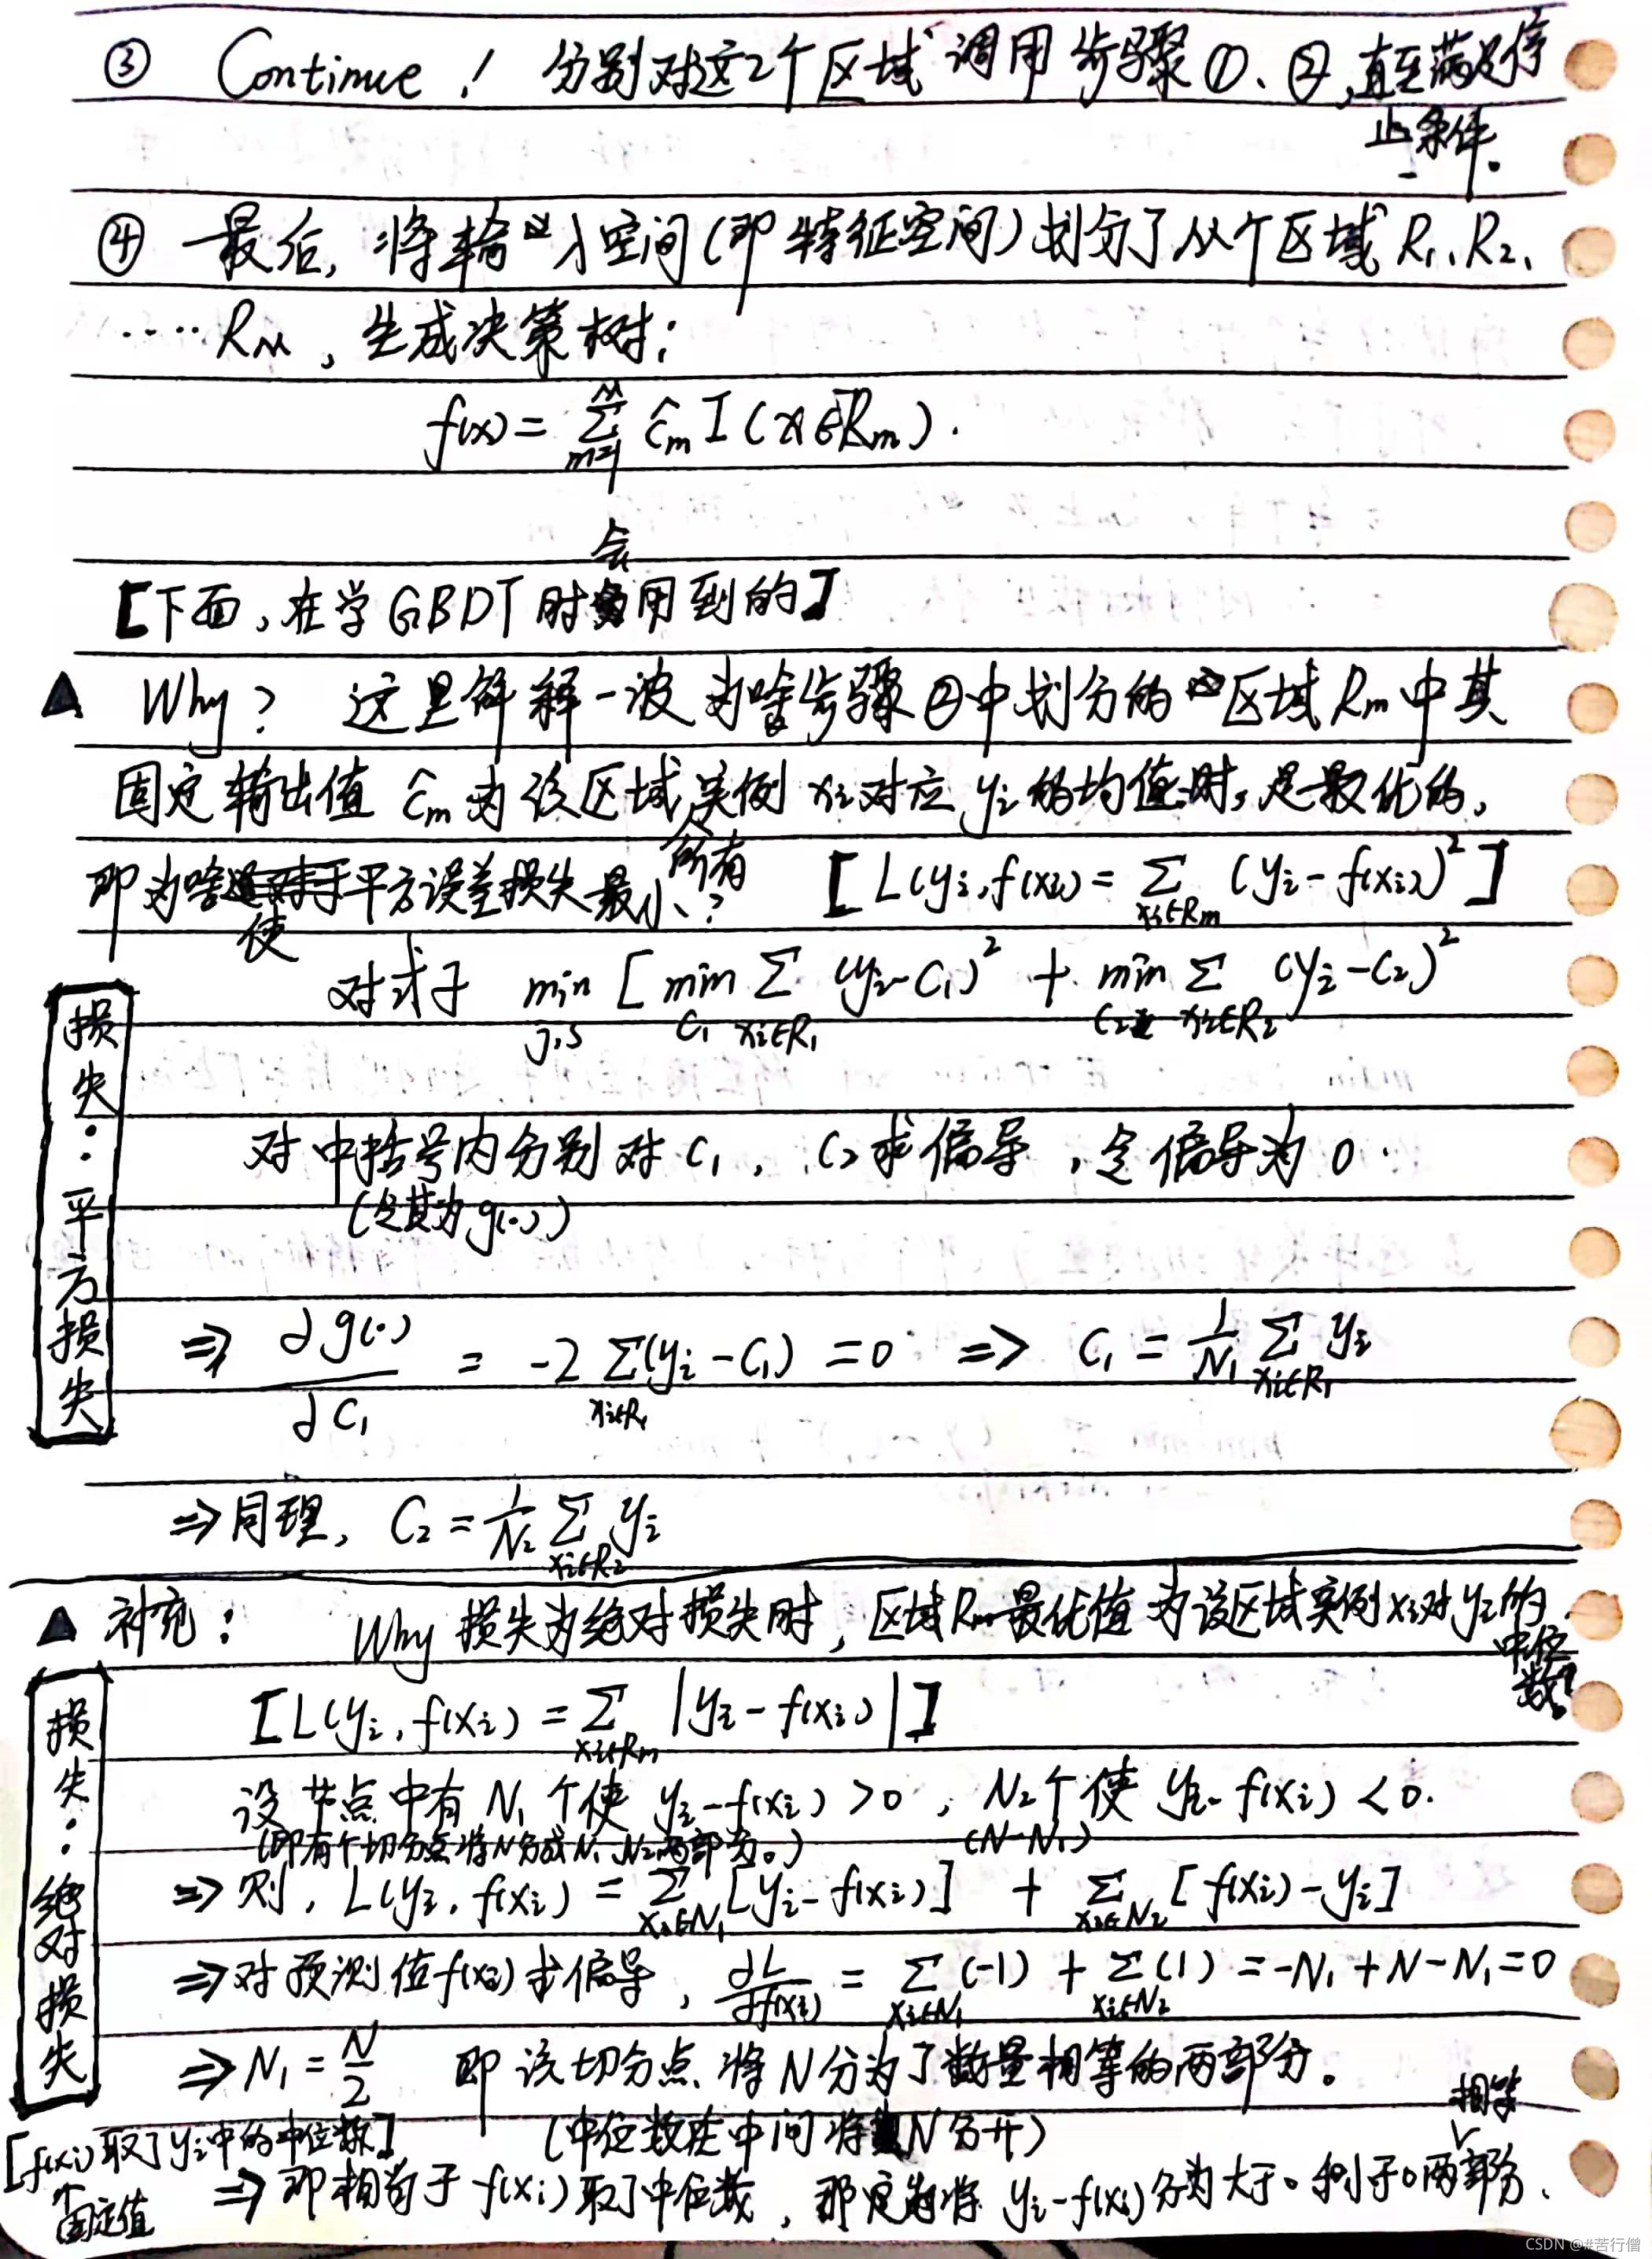 ③ Continue! 分别对这2个区域调用步骤①、②,直至满足停
止条件。
④ 最后,将输入空间(即特征空间)划分了M个区域R₁、R₂、
……R_M,生成决策树:
f(x) = ∑_{m=1}^{M} ĉ_m I(x∈R_m).
[下面,在学GBDT时会用到的]
▲ Why? 这里解释一波为啥步骤②中划分的区域R_m中其
固定输出值ĉ_m为该区域所有实例x_i对应y_i的均值时,是最优的,
即为啥使平方误差损失最小? [L(y_i, f(x_i)) = ∑_{x_i∈R_m} (y_i - f(x_i))²]
损失:平方损失
对式子 min_{j,s} [min_{C₁} ∑_{x_i∈R₁} (y_i - C₁)² + min_{C₂} ∑_{x_i∈R₂} (y_i - C₂)²
对中括号内分别对C₁,C₂求偏导,令偏导为0.
(令其为g(·))
⇒ ∂g(·)/∂C₁ = -2∑_{x_i∈R₁}(y_i - C₁) = 0 ⇒ C₁ = 1/N₁ ∑_{x_i∈R₁} y_i
⇒同理, C₂ = 1/N₂ ∑_{x_i∈R₂} y_i
▲ 补充: Why 损失为绝对损失时,区域R_m最优值为该区域实例x_i对y_i的
中位数?
损失:绝对损失
[L(y_i, f(x_i)) = ∑_{x_i∈R_m} |y_i - f(x_i)|]
设节点中有N₁个使 y_i - f(x_i) > 0, N₂个使 y_i - f(x_i) < 0.
(即有个切分点将N分成N₁、N₂两部分。) (N-N₁)
⇒ 则, L(y_i, f(x_i)) = ∑_{x_i∈N₁} [y_i - f(x_i)] + ∑_{x_i∈N₂} [f(x_i) - y_i]
⇒对预测值f(x_i)求偏导, ∂L/∂f(x_i) = ∑_{x_i∈N₁}(-1) + ∑_{x_i∈N₂}(1) = -N₁ + N - N₁ = 0
⇒ N₁ = N/2 即该切分点将N分为了数量相等的两部分。
[f(x_i)取了y_i中的中位数] (中位数在中间将N分开)
固定值
⇒ 即相当于f(x_i)取了中位数, 那定为将 y_i - f(x_i)分为大于0和小于0相等两部分.
CSDN @#苦行僧